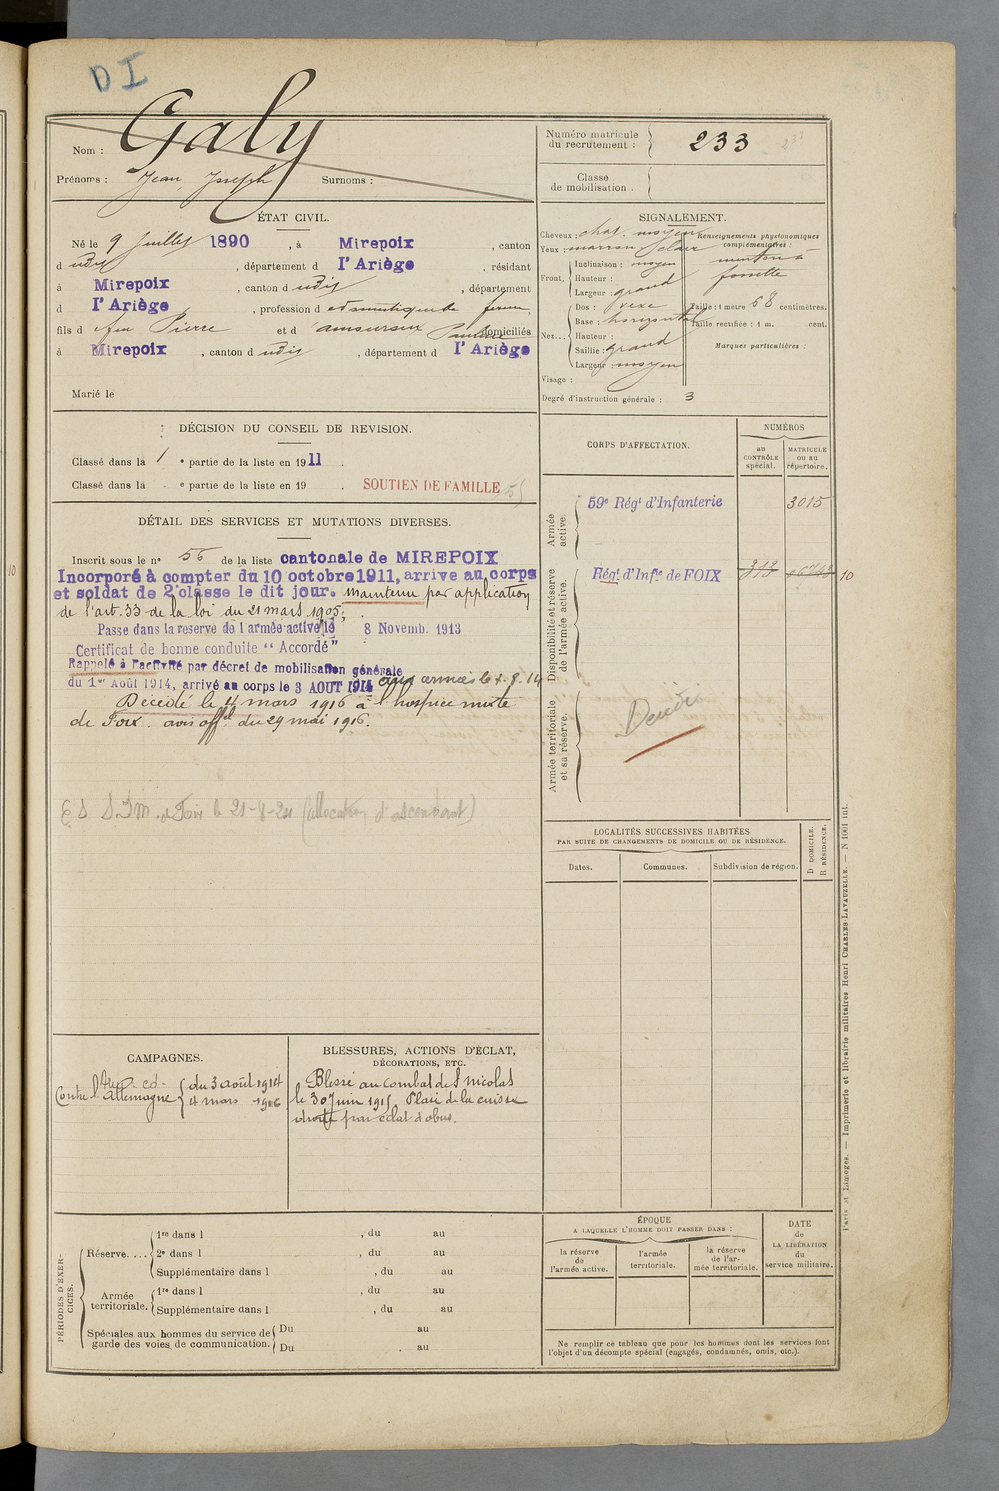 DI
Nom : Galy
Prénoms : Jean Joseph Surnoms :
Numéro matricule du recrutement : 233
Classe de mobilisation .
ÉTAT CIVIL.
Né le 9 Juillet 1890 , à Mirepoix , canton
d udit , département d l'Ariège , résidant
à Mirepoix , canton d udit , département
d l'Ariège , profession d
fils d feu Pierre et d domiciliés
à Mirepoix , canton d udit , département d l'Ariège
Marié le
SIGNALEMENT.
Cheveux : chat. moyen
Yeux : marron clair
Renseignements physionomiques complémentaires :
menton à
fossette
Front. Inclinaison : moyen
Hauteur :
Largeur : grand
Nez... Dos :
Base : horizontal
Hauteur :
Saillie : grand
Largeur : moyen
Taille : 1 mètre 68 centimètres.
Taille rectifiée : 1 m. cent.
Marques particulières :
Visage :
Degré d'instruction générale : 3
DÉCISION DU CONSEIL DE REVISION.
Classé dans la 1 e partie de la liste en 1911 .
Classé dans la e partie de la liste en 19 . SOUTIEN DE FAMILLE
DÉTAIL DES SERVICES ET MUTATIONS DIVERSES.
Inscrit sous le n° 56 de la liste cantonale de MIREPOIX
Incorporé à compter du 10 octobre 1911, arrive au corps
et soldat de 2e classe le dit jour. maintenu par application
de l'art. 33 de la loi du 21 mars 1905.
Passe dans la reserve de l armée active le 8 Novemb. 1913
Certificat de bonne conduite " Accordé "
Rappelé à l'activité par décret de mobilisation générale
du 1er Août 1914, arrivé au corps le 3 AOUT 1914 aux armées le 8.14
Décédé le 4 mars 1916 à l'hospice mixte
de Foix. avis offel du 29 mai 1916.
de Foix le 21-8-24 (allocation d'ascendant)
CORPS D'AFFECTATION.
NUMÉROS
au CONTRÔLE spécial.
MATRICULE OU AU répertoire.
Armée active.
59e Régt d'Infanterie 3015
Disponibilité et réserve de l'armée active.
Régt d'Infie de FOIX 313 10
Armée territoriale et sa réserve.
LOCALITÉS SUCCESSIVES HABITÉES
PAR SUITE DE CHANGEMENTS DE DOMICILE OU DE RÉSIDENCE.
Dates.
Communes.
Subdivision de région.
D DOMICILE.
R RÉSIDENCE.
CAMPAGNES.
Contre l'Allemagne du 3 août 1914
4 mars 1916
BLESSURES, ACTIONS D'ÉCLAT,
DÉCORATIONS, ETC.
Blessé au combat de St nicolas
le 30 Juin 1915 Plaie de la cuisse
droite par éclat d'obus.
PÉRIODES D'EXERCICES.
Réserve. ...
1re dans l , du au
2e dans l , du au
Supplémentaire dans l , du au
Armée territoriale.
1re dans l , du au
Supplémentaire dans l , du au
Spéciales aux hommes du service de garde des voies de communication.
Du au
Du au
ÉPOQUE
A LAQUELLE L'HOMME DOIT PASSER DANS :
la réserve de l'armée active.
l'armée territoriale.
la réserve de l'armée territoriale.
DATE de LA LIBÉRATION du service militaire.
Ne remplir ce tableau que pour les hommes dont les services font
l'objet d'un décompte spécial (engagés, condamnés, omis, etc.).
Paris et Limoges. — Imprimerie et librairie militaires Henri CHARLES-LAVAUZELLE. — N 1001 int.
10